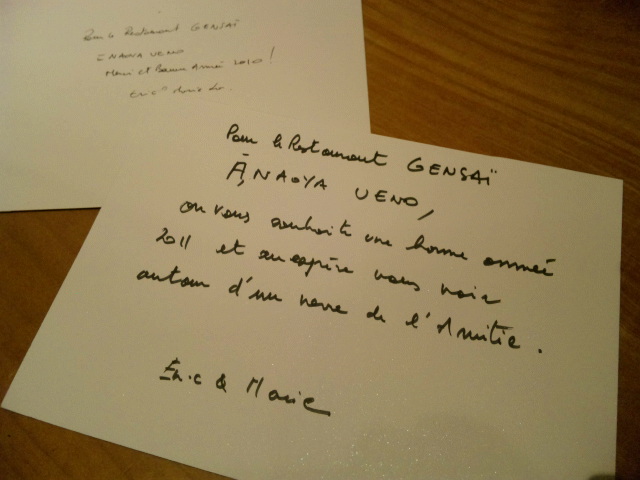 Pour le Restaurant GENSAÏ
ENAOYA UENO
Merci et Bonne Année 2010 !
Pour le Restaurant GENSAÏ
À NAOYA UENO,
on vous souhaite une bonne année
2011 et on espère vous voir
autour d'un verre de l'Amitié.
Eric & Marie